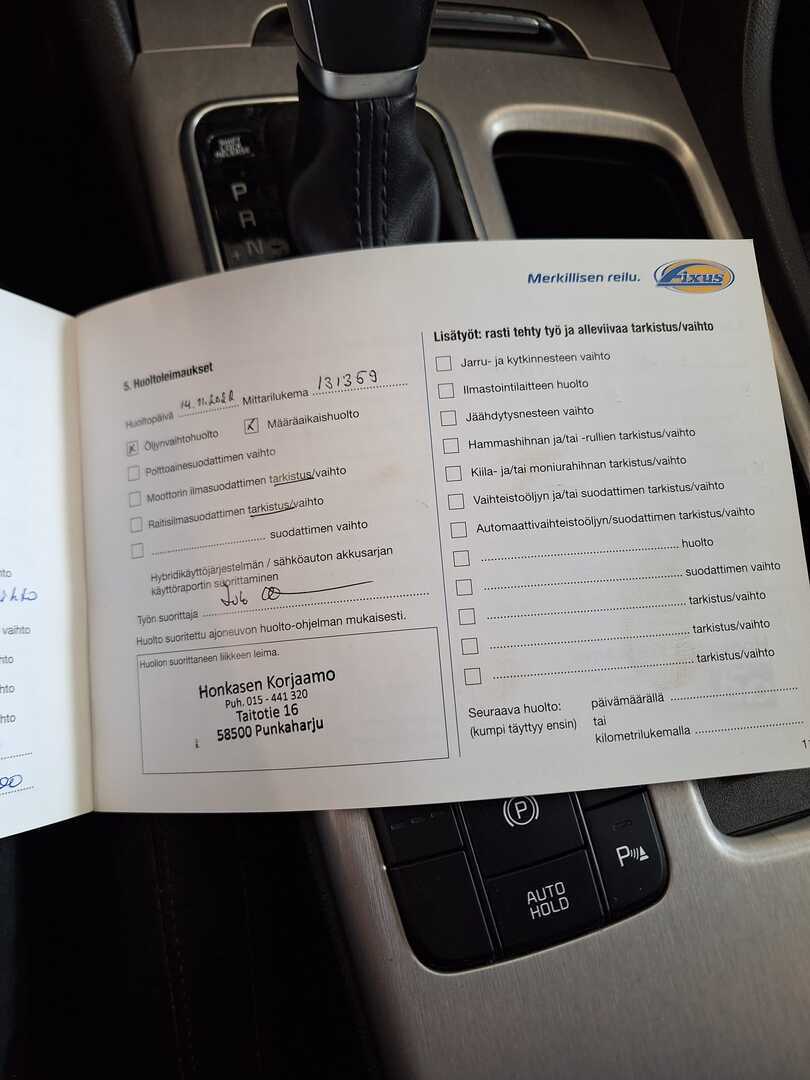 SHIFT
LOCK
RELEASE
P
R
N
Merkillisen reilu. Fixus
5. Huoltoleimaukset
Huoltopäivä 14.11.2022 Mittarilukema 131359
Öljynvaihtohuolto Määräaikaishuolto
Polttoainesuodattimen vaihto
Moottorin ilmasuodattimen tarkistus/vaihto
Raitisilmasuodattimen tarkistus/vaihto
suodattimen vaihto
Hybridikäyttöjärjestelmän / sähköauton akkusarjan
käyttöraportin suorittaminen
Työn suorittaja
Huolto suoritettu ajoneuvon huolto-ohjelman mukaisesti.
Huollon suorittaneen liikkeen leima.
Honkasen Korjaamo
Puh. 015 - 441 320
Taitotie 16
58500 Punkaharju
Lisätyöt: rasti tehty työ ja alleviivaa tarkistus/vaihto
Jarru- ja kytkinnesteen vaihto
Ilmastointilaitteen huolto
Jäähdytysnesteen vaihto
Hammashihnan ja/tai -rullien tarkistus/vaihto
Kiila- ja/tai moniurahihnan tarkistus/vaihto
Vaihteistoöljyn ja/tai suodattimen tarkistus/vaihto
Automaattivaihteistoöljyn/suodattimen tarkistus/vaihto
huolto
suodattimen vaihto
tarkistus/vaihto
tarkistus/vaihto
tarkistus/vaihto
Seuraava huolto: päivämäärällä
(kumpi täyttyy ensin) tai
kilometrilukemalla
vaihto
P
P
AUTO
HOLD